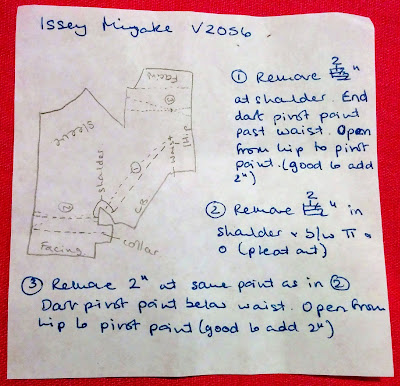 Issey Miyake V2056
Facing
③
Sleeve
shoulder
①
waist
Hip
②
CB
Facing
collar
① Remove 2"
at shoulder. End
dart pivot point
past waist. Open
from hip to pivot
point. (good to add
2")
② Remove 2" in
shoulder
0 (pleat out)
③ Remove 2" at same point as in ②
Dart pivot point below waist. Open from
hip to pivot point (good to add 2")